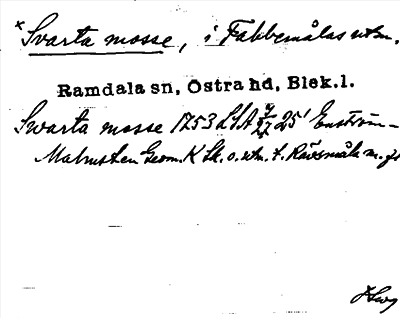 × Svarta mosse, i Fabbemålas utm.
Ramdala sn, Östra hd, Blek.l.
Swarta mosse 1753 LSA 25' Enström-
Malmsten Geom. K Sk. o. utm. t. Rävsmåla m. fl